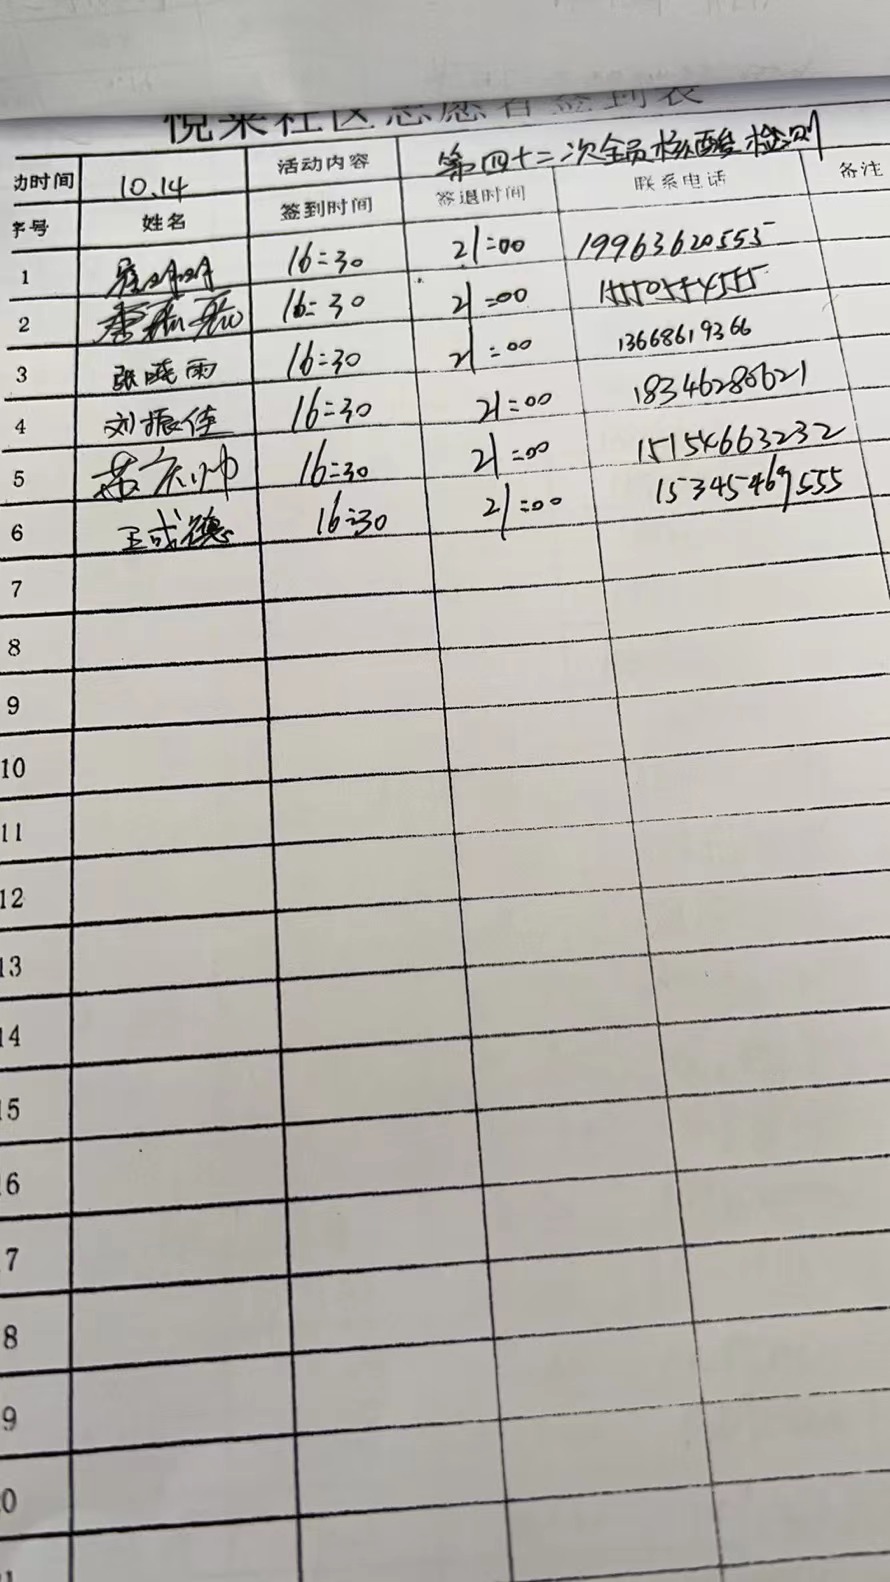 悦来社区志愿者签到表
动时间 10.14 活动内容 第四十二次全员核酸检测
序号 姓名 签到时间 签退时间 联系电话 备注
1 16:30 21:00 19963620555
2 16:30 21:00
3 张晓雨 16:30 21:00 13668619366
4 刘振佳 16:30 21:00 18346280621
5 苏庆帅 16:30 21:00 15154663232
6 王成德 16:30 21:00 15345469555
7
8
9
10
11
12
13
14
15
16
7
8
9
0